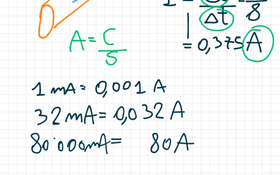 Δt 8
A = C/s = 0,375 A
1 mA = 0,001 A
32 mA = 0,032 A
80.000 mA = 80 A